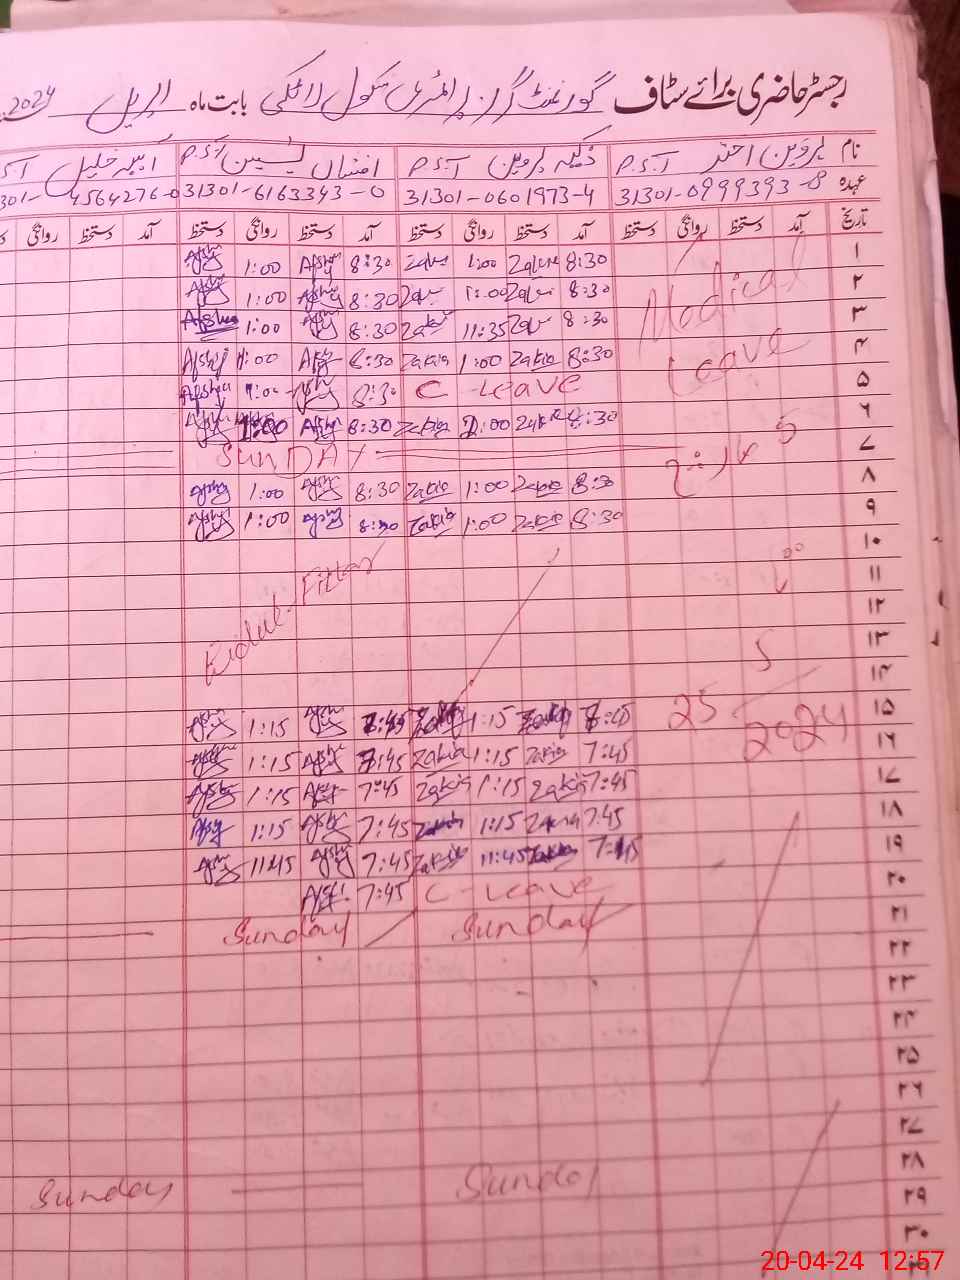 رجسٹر حاضری برائے سٹاف گورنمنٹ گرلز پرائمری سکول لاٹکی بابت ماہ اپریل 2024
نام پروین اختر P.S.T ذکیہ پروین P.S.T افشاں یٰسین P.S.T انیسہ خلیل
عہدہ 31301-0999393-8 31301-0601973-4 31301-6163343-0 301-4564276-0
تاریخ آمد دستخط روانگی دستخط آمد دستخط روانگی دستخط آمد دستخط روانگی دستخط آمد دستخط روانگی
۱ 8:30 Zakia 1:00 Zakia 8:30 Afshy 1:00 Afshy
۲ 8:30 Zakia 1:00 Zakia 8:30 Afshy 1:00 Afshy
۳ 8:30 Zakia 11:35 Zakia 8:30 Afshy 1:00 Afshan
۴ 8:30 Zakia 1:00 Zakia 8:30 Afshy 1:00 Afshy
Medical Leave
۵ C-Leave 8:30 Afshy 1:00 Afshy
۶ 8:30 Zakia 1:00 Zakia 8:30 Afshy 1:00 Afshy
۷ SunDAY
5 مارچ
۸ 8:30 Zakia 1:00 Zakia 8:30 Afshy 1:00 Afshy
۹ 8:30 Zakia 1:00 Zakia 8:30 Afshy 1:00 Afshy
۱۰
۱۱
۱۲
۱۳
۱۴
Eidul-Fitter
25 5 2024
۱۵ 7:45 Zakia 1:15 Zakia 7:45 Afshy 1:15 Afshy
۱۶ 7:45 Zakia 1:15 Zakia 7:45 Afshy 1:15 Afshy
۱۷ 7:45 Zakia 1:15 Zakia 7:45 Afshy 1:15 Afshy
۱۸ 7:45 Zakia 1:15 Zakia 7:45 Afshy 1:15 Afshy
۱۹ 7:45 Zakia 11:45 Zakia 7:45 Afshy 11:45 Afshy
۲۰ C-Leave 7:45 Afshy
۲۱ Sunday Sunday
۲۲
۲۳
۲۴
۲۵
۲۶
۲۷
۲۸ Sunday Sunday
۲۹
۳۰
۳۱
20-04-24 12:57